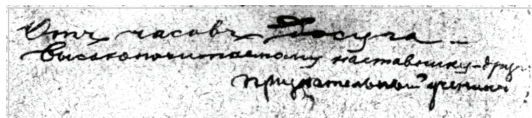 Отъ часовъ Досуга –
высокочитаемому наставнику-другу
признательный ученикъ